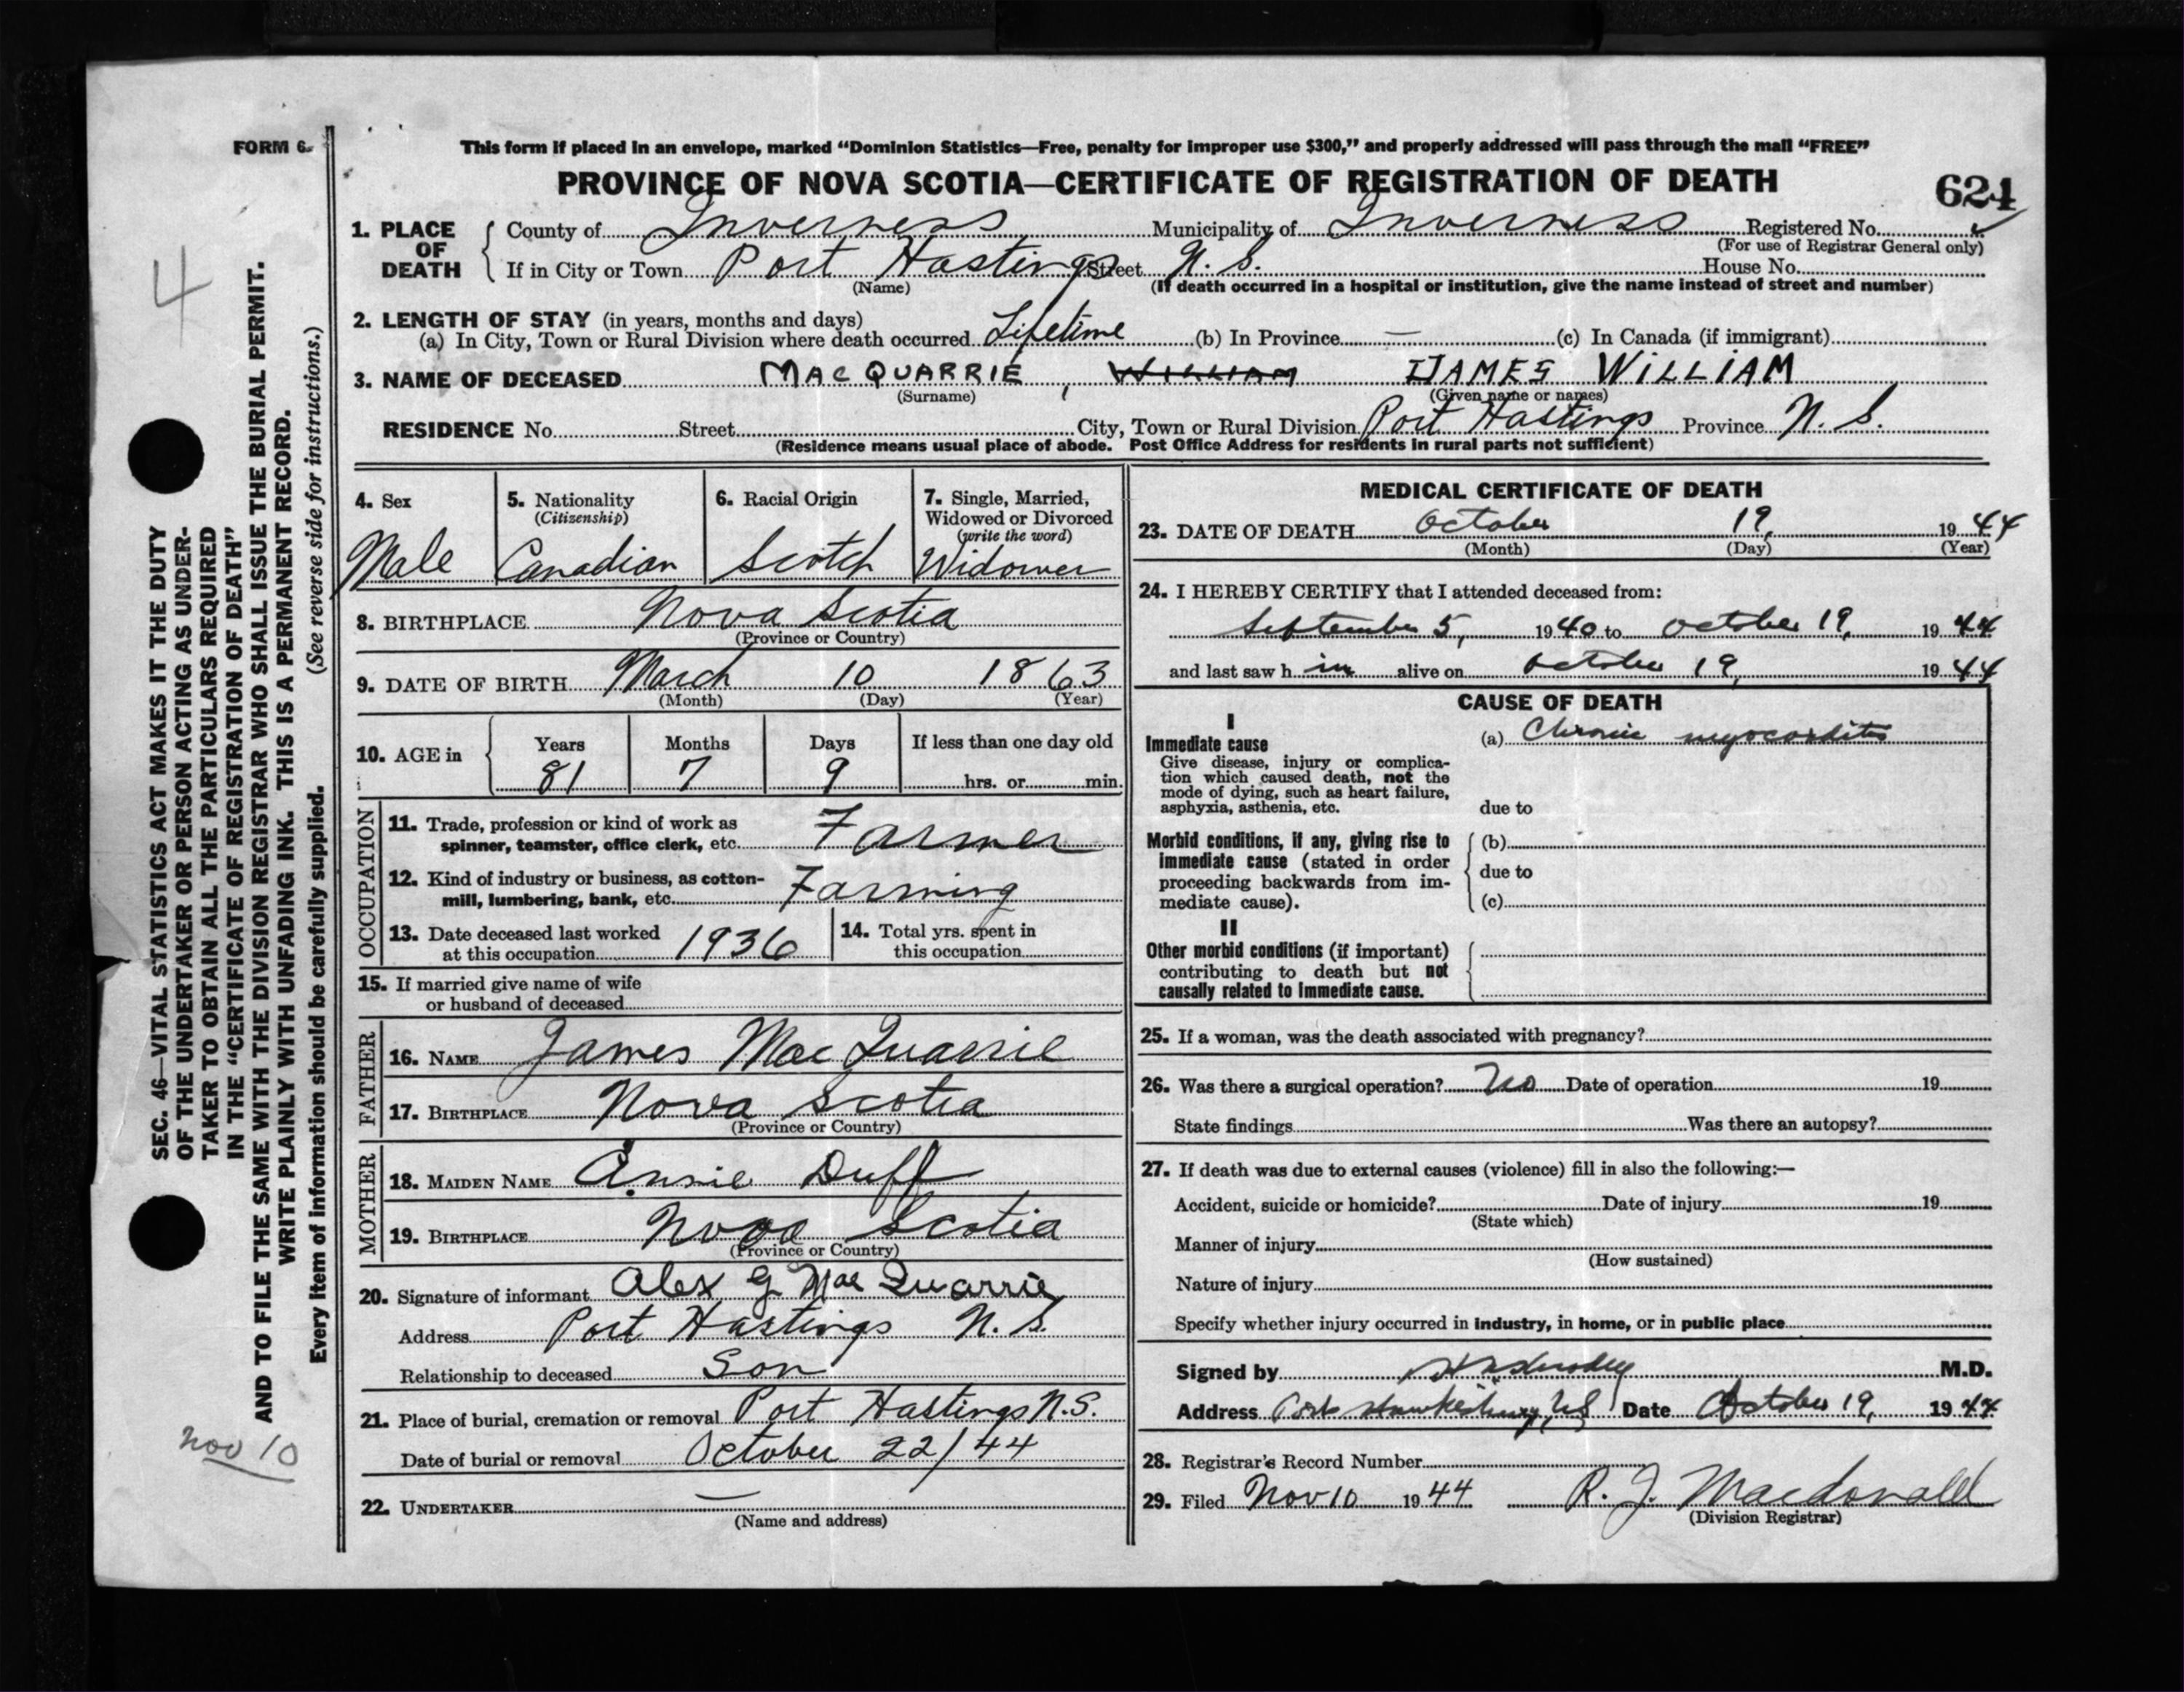 FORM 6
This form if placed in an envelope, marked “Dominion Statistics—Free, penalty for improper use $300,” and properly addressed will pass through the mail “FREE”
PROVINCE OF NOVA SCOTIA—CERTIFICATE OF REGISTRATION OF DEATH
624
1. PLACE OF DEATH
County of Inverness Municipality of Inverness Registered No.
(For use of Registrar General only)
If in City or Town Port Hastings Street N. S. House No.
(Name) (If death occurred in a hospital or institution, give the name instead of street and number)
2. LENGTH OF STAY (in years, months and days)
(a) In City, Town or Rural Division where death occurred Lifetime (b) In Province — (c) In Canada (if immigrant)
3. NAME OF DECEASED MACQUARRIE, WILLIAM JAMES WILLIAM
(Surname) (Given name or names)
RESIDENCE No. Street City, Town or Rural Division Port Hastings Province N. S.
(Residence means usual place of abode. Post Office Address for residents in rural parts not sufficient)
4. Sex
Male
5. Nationality
(Citizenship)
Canadian
6. Racial Origin
Scotch
7. Single, Married,
Widowed or Divorced
(write the word)
Widower
8. BIRTHPLACE Nova Scotia
(Province or Country)
9. DATE OF BIRTH March 10 1863
(Month) (Day) (Year)
10. AGE in
Years Months Days If less than one day old
81 7 9 hrs. or min.
OCCUPATION
11. Trade, profession or kind of work as
spinner, teamster, office clerk, etc. Farmer
12. Kind of industry or business, as cotton-
mill, lumbering, bank, etc. Farming
13. Date deceased last worked
at this occupation 1936
14. Total yrs. spent in
this occupation
15. If married give name of wife
or husband of deceased
FATHER
16. NAME James MacQuarrie
17. BIRTHPLACE Nova Scotia
(Province or Country)
MOTHER
18. MAIDEN NAME Annie Duff
19. BIRTHPLACE Nova Scotia
(Province or Country)
20. Signature of informant Alex G MacQuarrie
Address Port Hastings N. S.
Relationship to deceased Son
21. Place of burial, cremation or removal Port Hastings N.S.
Date of burial or removal October 22/44
22. UNDERTAKER —
(Name and address)
MEDICAL CERTIFICATE OF DEATH
23. DATE OF DEATH October 19, 1944
(Month) (Day) (Year)
24. I HEREBY CERTIFY that I attended deceased from:
September 5, 1940 to October 19, 1944
and last saw h im alive on October 19, 1944
CAUSE OF DEATH
I
Immediate cause
Give disease, injury or complica-
tion which caused death, not the
mode of dying, such as heart failure,
asphyxia, asthenia, etc.
(a) Chronic myocarditis
due to
Morbid conditions, if any, giving rise to
immediate cause (stated in order
proceeding backwards from im-
mediate cause).
(b)
due to
(c)
II
Other morbid conditions (if important)
contributing to death but not
causally related to immediate cause.
25. If a woman, was the death associated with pregnancy?
26. Was there a surgical operation? No Date of operation 19
State findings Was there an autopsy?
27. If death was due to external causes (violence) fill in also the following:—
Accident, suicide or homicide? Date of injury 19
(State which)
Manner of injury
(How sustained)
Nature of injury
Specify whether injury occurred in industry, in home, or in public place
Signed by M.D.
Address Port Hawkesbury, NS Date October 19, 1944
28. Registrar's Record Number
29. Filed Nov 10 1944 R. J. Macdonald
(Division Registrar)
4
SEC. 46—VITAL STATISTICS ACT MAKES IT THE DUTY
OF THE UNDERTAKER OR PERSON ACTING AS UNDER-
TAKER TO OBTAIN ALL THE PARTICULARS REQUIRED
IN THE “CERTIFICATE OF REGISTRATION OF DEATH”
AND TO FILE THE SAME WITH THE DIVISION REGISTRAR WHO SHALL ISSUE THE BURIAL PERMIT.
WRITE PLAINLY WITH UNFADING INK. THIS IS A PERMANENT RECORD.
Every item of information should be carefully supplied. (See reverse side for instructions.)
Nov 10